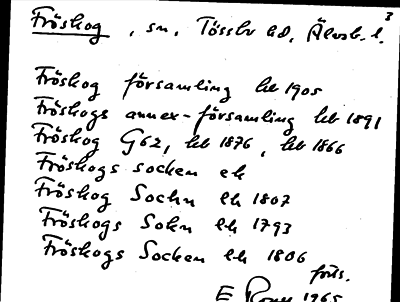 3
Fröskog, sn, Tössbo hd, Älvsb. l.
Fröskog församling hb 1905
Fröskogs annex-församling hb 1891
Fröskog G62, hb 1876, hb 1866
Fröskogs socken eh
Fröskog Sochn eh 1807
Fröskogs Sokn eh 1793
Fröskogs Socken eh 1806
forts.
E 1965